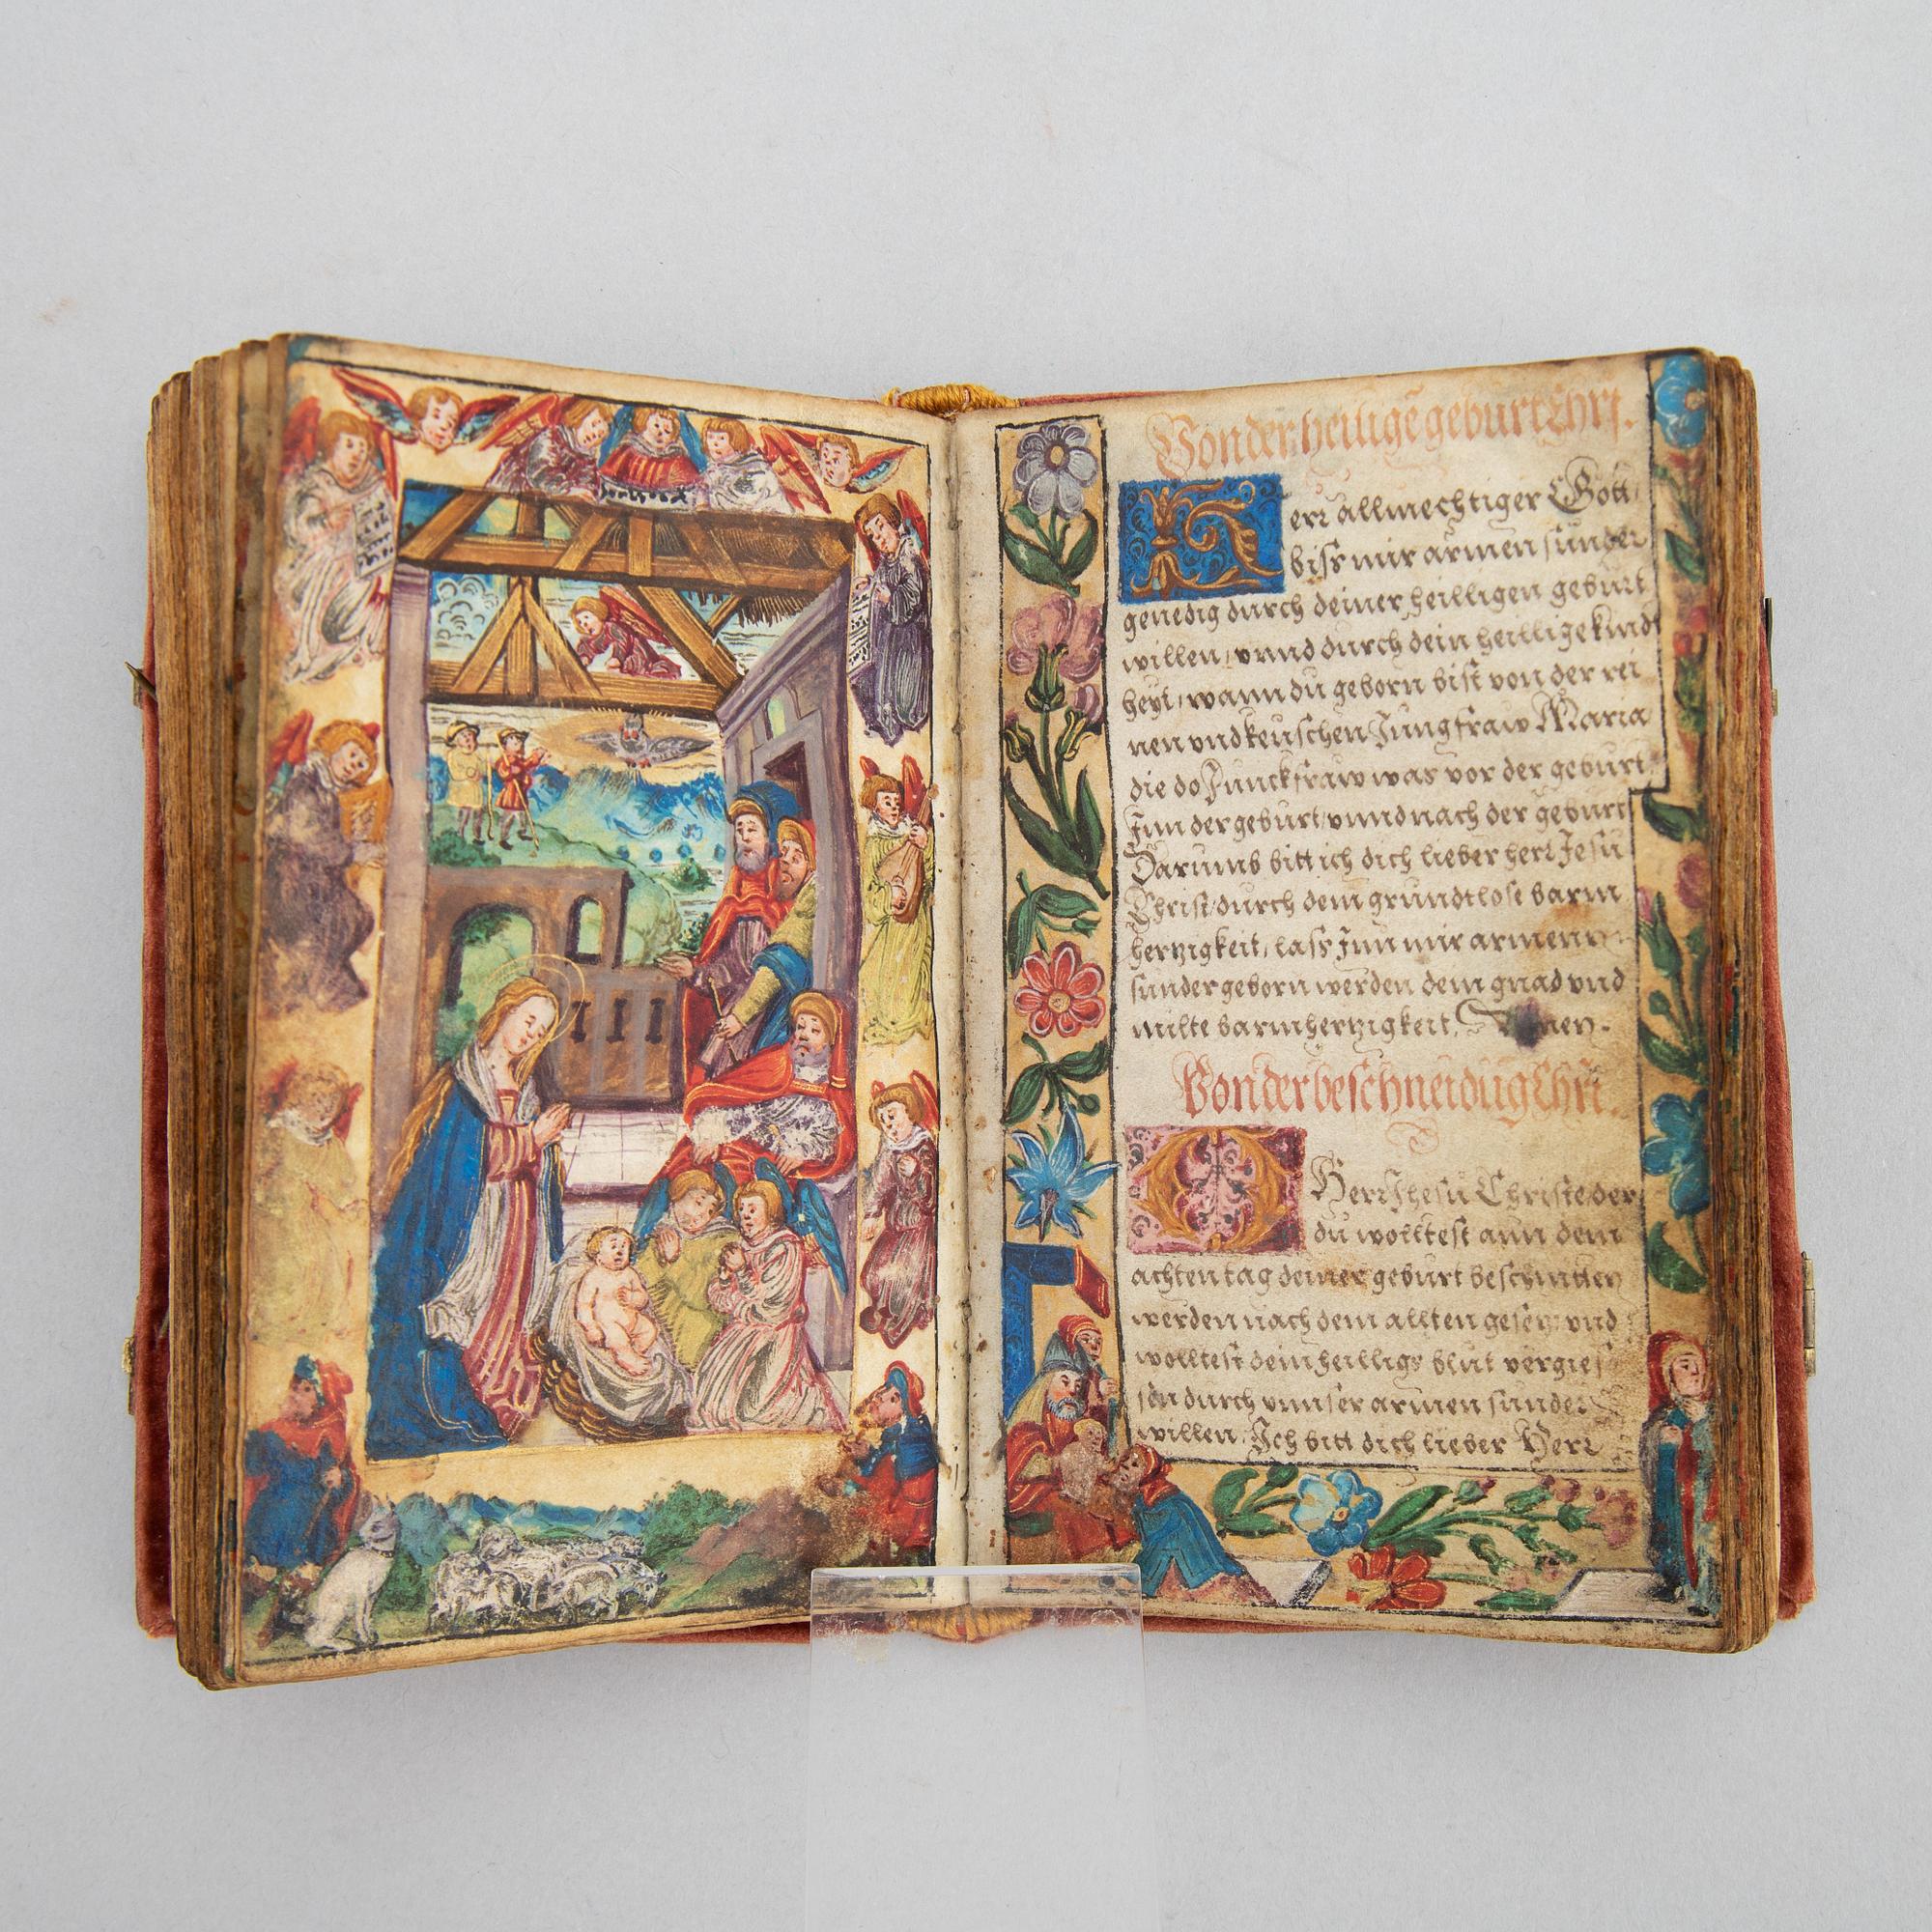 Von der heilige geburt Chri.
Herr allmechtiger Gott
biss mir armen sünder
genedig durch deiner heilligen geburt
willen, vnnd durch dein heillige kind
heyt, wann du geborn bist von der rei
nen vnd keuschen Jungfraw Maria
die do Junckfraw was vor der geburt
Jnn der geburt vnnd nach der geburt
Darumb bitt ich dich lieber herr Jesu
Christ durch dein grundtlose barm
hertzigkeit, lass Jnn mir armenn
sunder geborn werden dein gnad vnd
milte barmhertzigkeit, Amen.
Von der beschneidūg Chri.
O Herr Jhesu Christe der
du wolltest ann dem
achten tag deiner geburt beschnitten
werden nach dem allten gesetz vnd
wolltest dein heilligs blut vergies
sen durch vnnser armen sunder
willen. Ich bitt dich lieber Herr